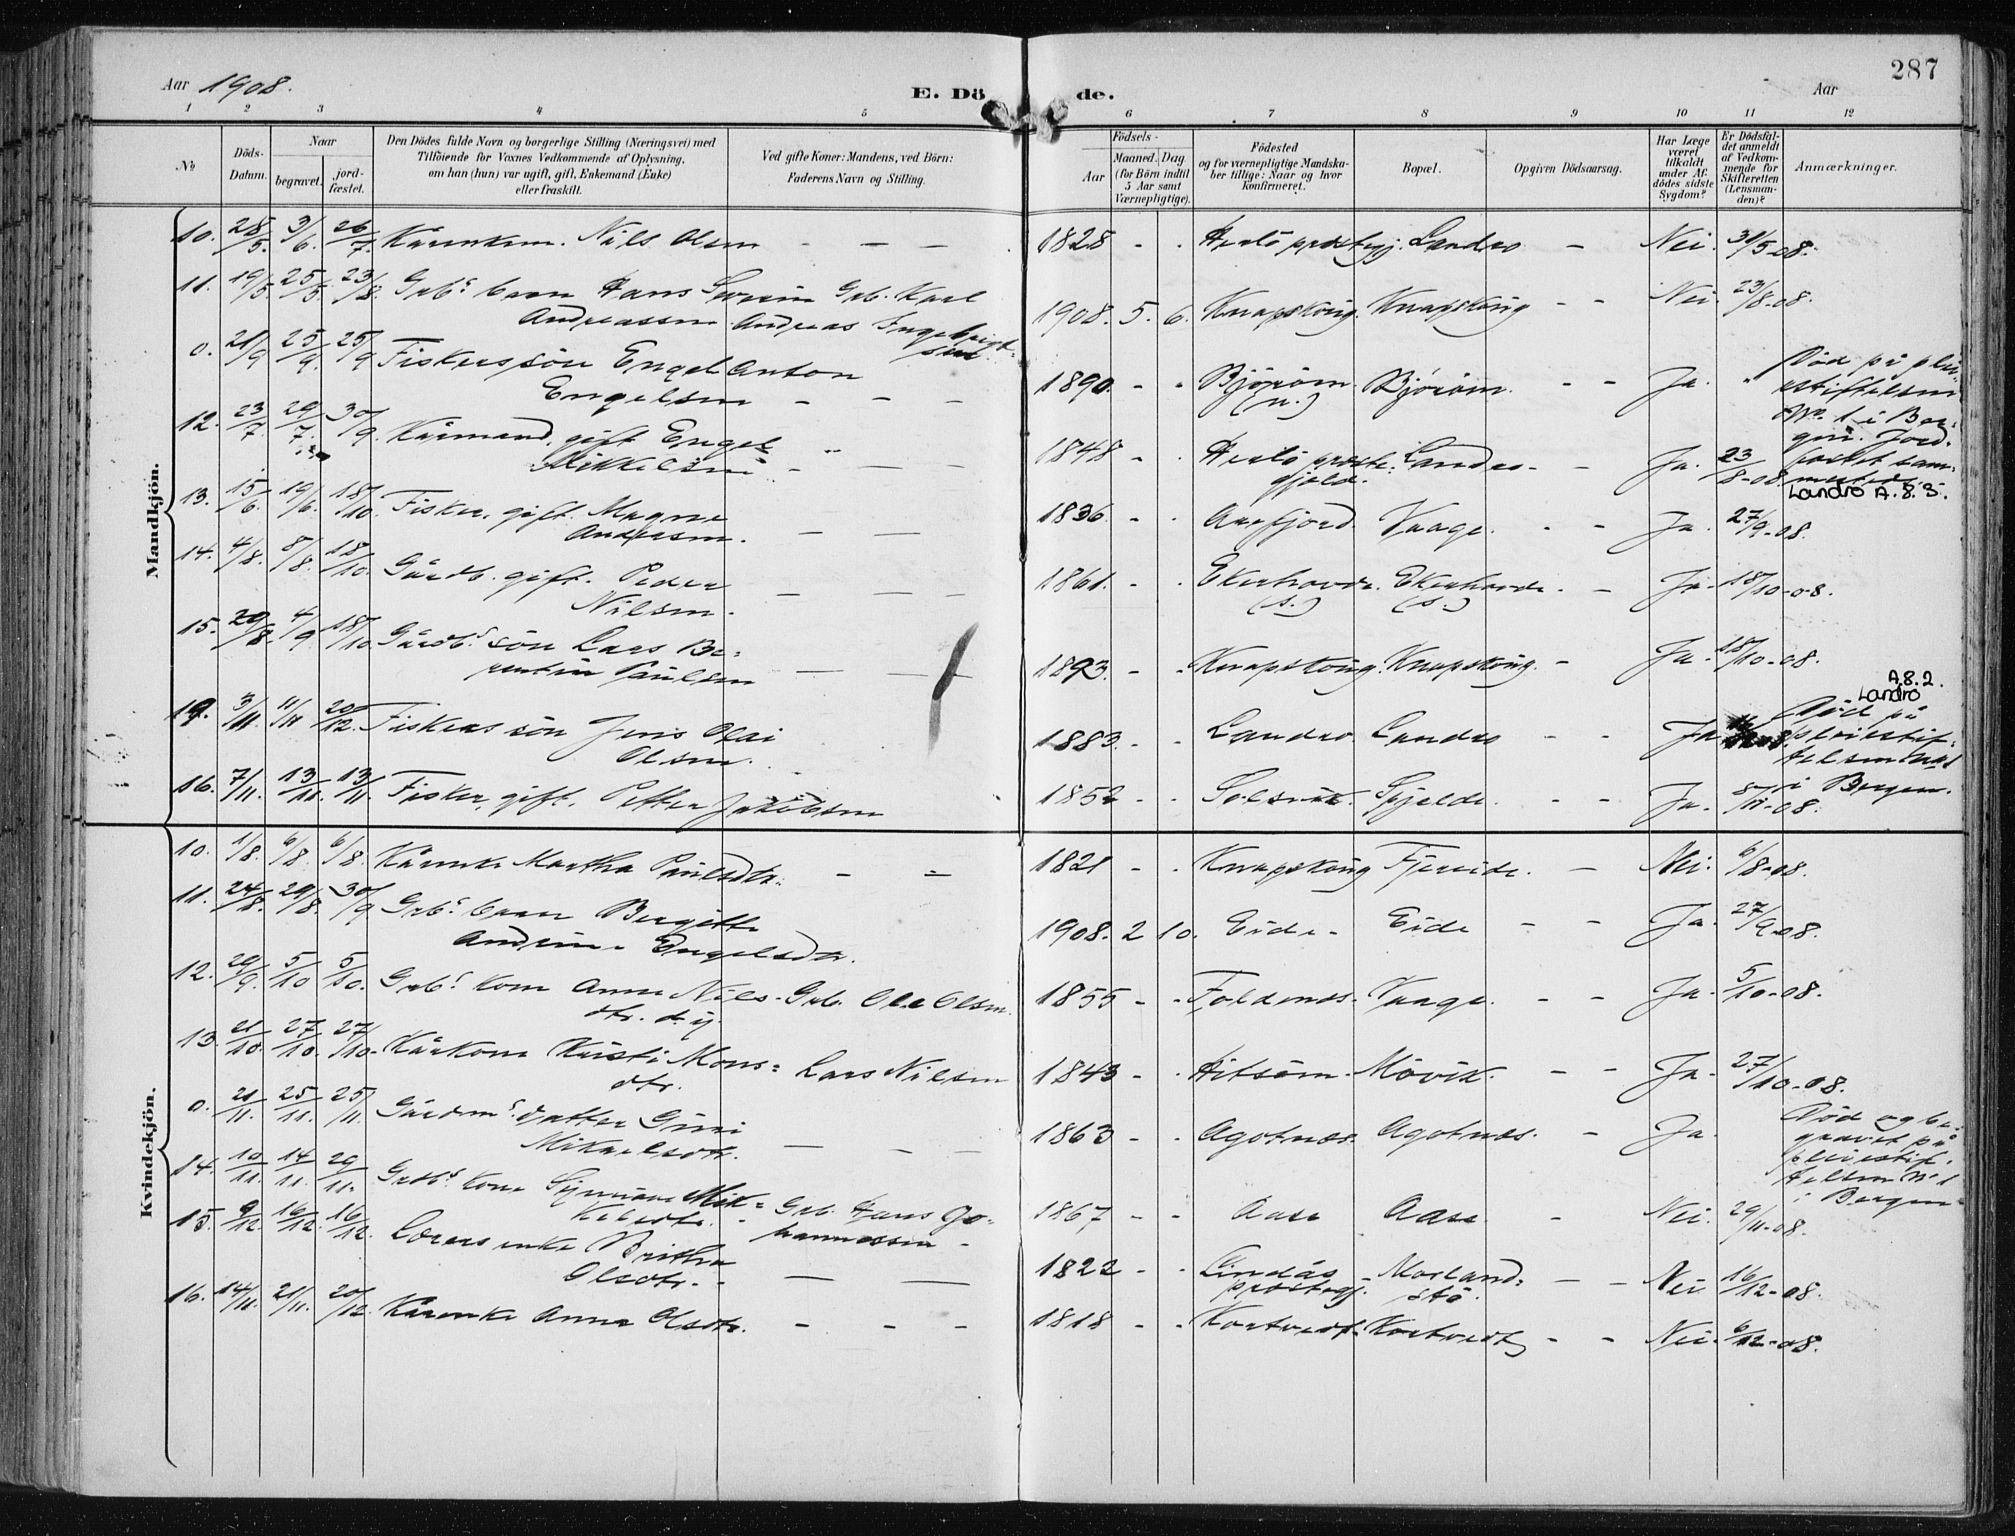 287
Aar 1908.
E. Dö de.
Aar
1 2 3 4 5 6 7 8 9 10 11 12
No
Döds-Datum.
Naar
begravet.
jord-fæstet.
Den Dödes fulde Navn og borgerlige Stilling (Næringsvei) med
Tilföiende for Voxnes Vedkommende af Oplysning,
om han (hun) var ugift, gift, Enkemand (Enke)
eller fraskilt.
Ved gifte Koner: Mandens, ved Börn:
Faderens Navn og Stilling.
Födsels-
Aar
Maaned. Dag.
(for Börn indtil
5 Aar samt
Værnepligtige).
Födested
og for værnepligtige Mandska-
ber tillige: Naar og hvor
Konfirmeret.
Bopæl.
Opgiven Dödsaarsag.
Har Læge
været
tilkaldt
under Af-
dödes sidste
Sygdom?
Er Dödsfal-
det anmeldt
af Vedkom-
mende for
Skifteretten
(Lensman-
den)?
Anmærkninger.
Mandkjön.
10. 28/5. 3/6. 26/7. Kårenkem. Nils Olsen - - - 1828 - - Herlö prestegj. Landro - Nei. 30/5-08.
11. 19/5. 25/5. 23/8. Grbs barn Hans Severin Grb. Karl
Andreassen. Andreas Ingebrigt-
sen 1908. 5. 6. Knapskoug. Knapskoug - - Nei. 23/8-08.
0. 21/9 25/9. 25/9 Fiskers sön Engel Anton
Engelsen - - - 1890. - - Björöen (n.) Björöen. - - Ja. "
Död på plei-
estiftelsen
No. 1 i Ber-
gen. Jord-
fæstet sam-
mesteds
12. 23/7. 29/7. 30/9. Kårmand, gift Engel
Mikkelsen - - - 1848 - - Herlö preste-
gjeld. Landro - - Ja. 23/8-08.
Landro A.8.3.
13. 15/6. 19/6. 18/10. Fisker, gift. Magne
Andersen. - - 1836. - - Aarfjord Vaage. - - Ja. 27/9-08.
14. 4/8. 8/8. 18/10. Gårdb. gift. Peder
Nilsen. - - - 1861. - - Ekerhovde. (s.) Ekerhovde. (s.) - Ja - 18/10-08.
15. 29/8. 4/9 18/10. Gårdbs sön Lars Be-
rentin Paulsen - - - 1893. - - Knapskoug. Knapskoug. - Ja. 18/10-08.
A.8.2.
Landro
19. 3/11. 11/11 20/12. Fiskers sön Jens Olai
Olsen. 1883. - - Landro Landro - - Ja
Död på
pleiestif-
telsen No 1
i Bergen.
16. 7/11. 13/11. 13/11. Fisker, gift, Petter Jakobsen 1852 - - Solsvik. Spjelde. - - Ja. 8/11-08.
Kvindekjön.
10. 1/8. 6/8. 6/8. Kårenke Martha Paulsdtr. - - 1821 - - Knapskoug Fjereide. - Nei. 6/8-08.
11. 24/8. 29/8. 30/9 Grbs barn Bergitte
Andrina Engelsdtr. 1908. 2 10. Eide. Eide - - Ja. 27/9-08.
12. 29/9. 5/10 5/10. Grbs kone Anna Nils- Grb. Ole Olsen.
dtr. d.y. 1855 - - Foldenes. Vaage. - - Ja. 5/10-08.
13. 21/10. 27/10. 27/10. Kårkone Kristi Mons- Lars Nilsen
dtr. 1843 - - Hitsöen. Mövik. - - Ja. 27/10-08.
0. 21/11. 25/11. 25/11. Gårdms datter Guri
Mikaelsdtr. - - - 1863 - - Agotnæs. Agotnæs. - Ja.
Död og be-
gravet på
pleiestif-
telsen No 1
i Bergen
14. 10/11. 14/11. 29/11. Grbs kone Mik- Grb. Hans Jo-
kelsdtr. hannessen - 1867 - - Aase Aase. - Nei. 29/11-08.
15. 9/12. 16/12. 16/12. Lærers enke Britha
Olsdtr. - - - 1822 - - Lindås
prestegj. Morland-
stö. - - Nei 16/12-08.
16. 14/11. 21/11. 20/12. Kårenke Anna Olsdtr. - - - 1818 - - Kortvedt. Kortvedt - - Nei. 6/12-08.